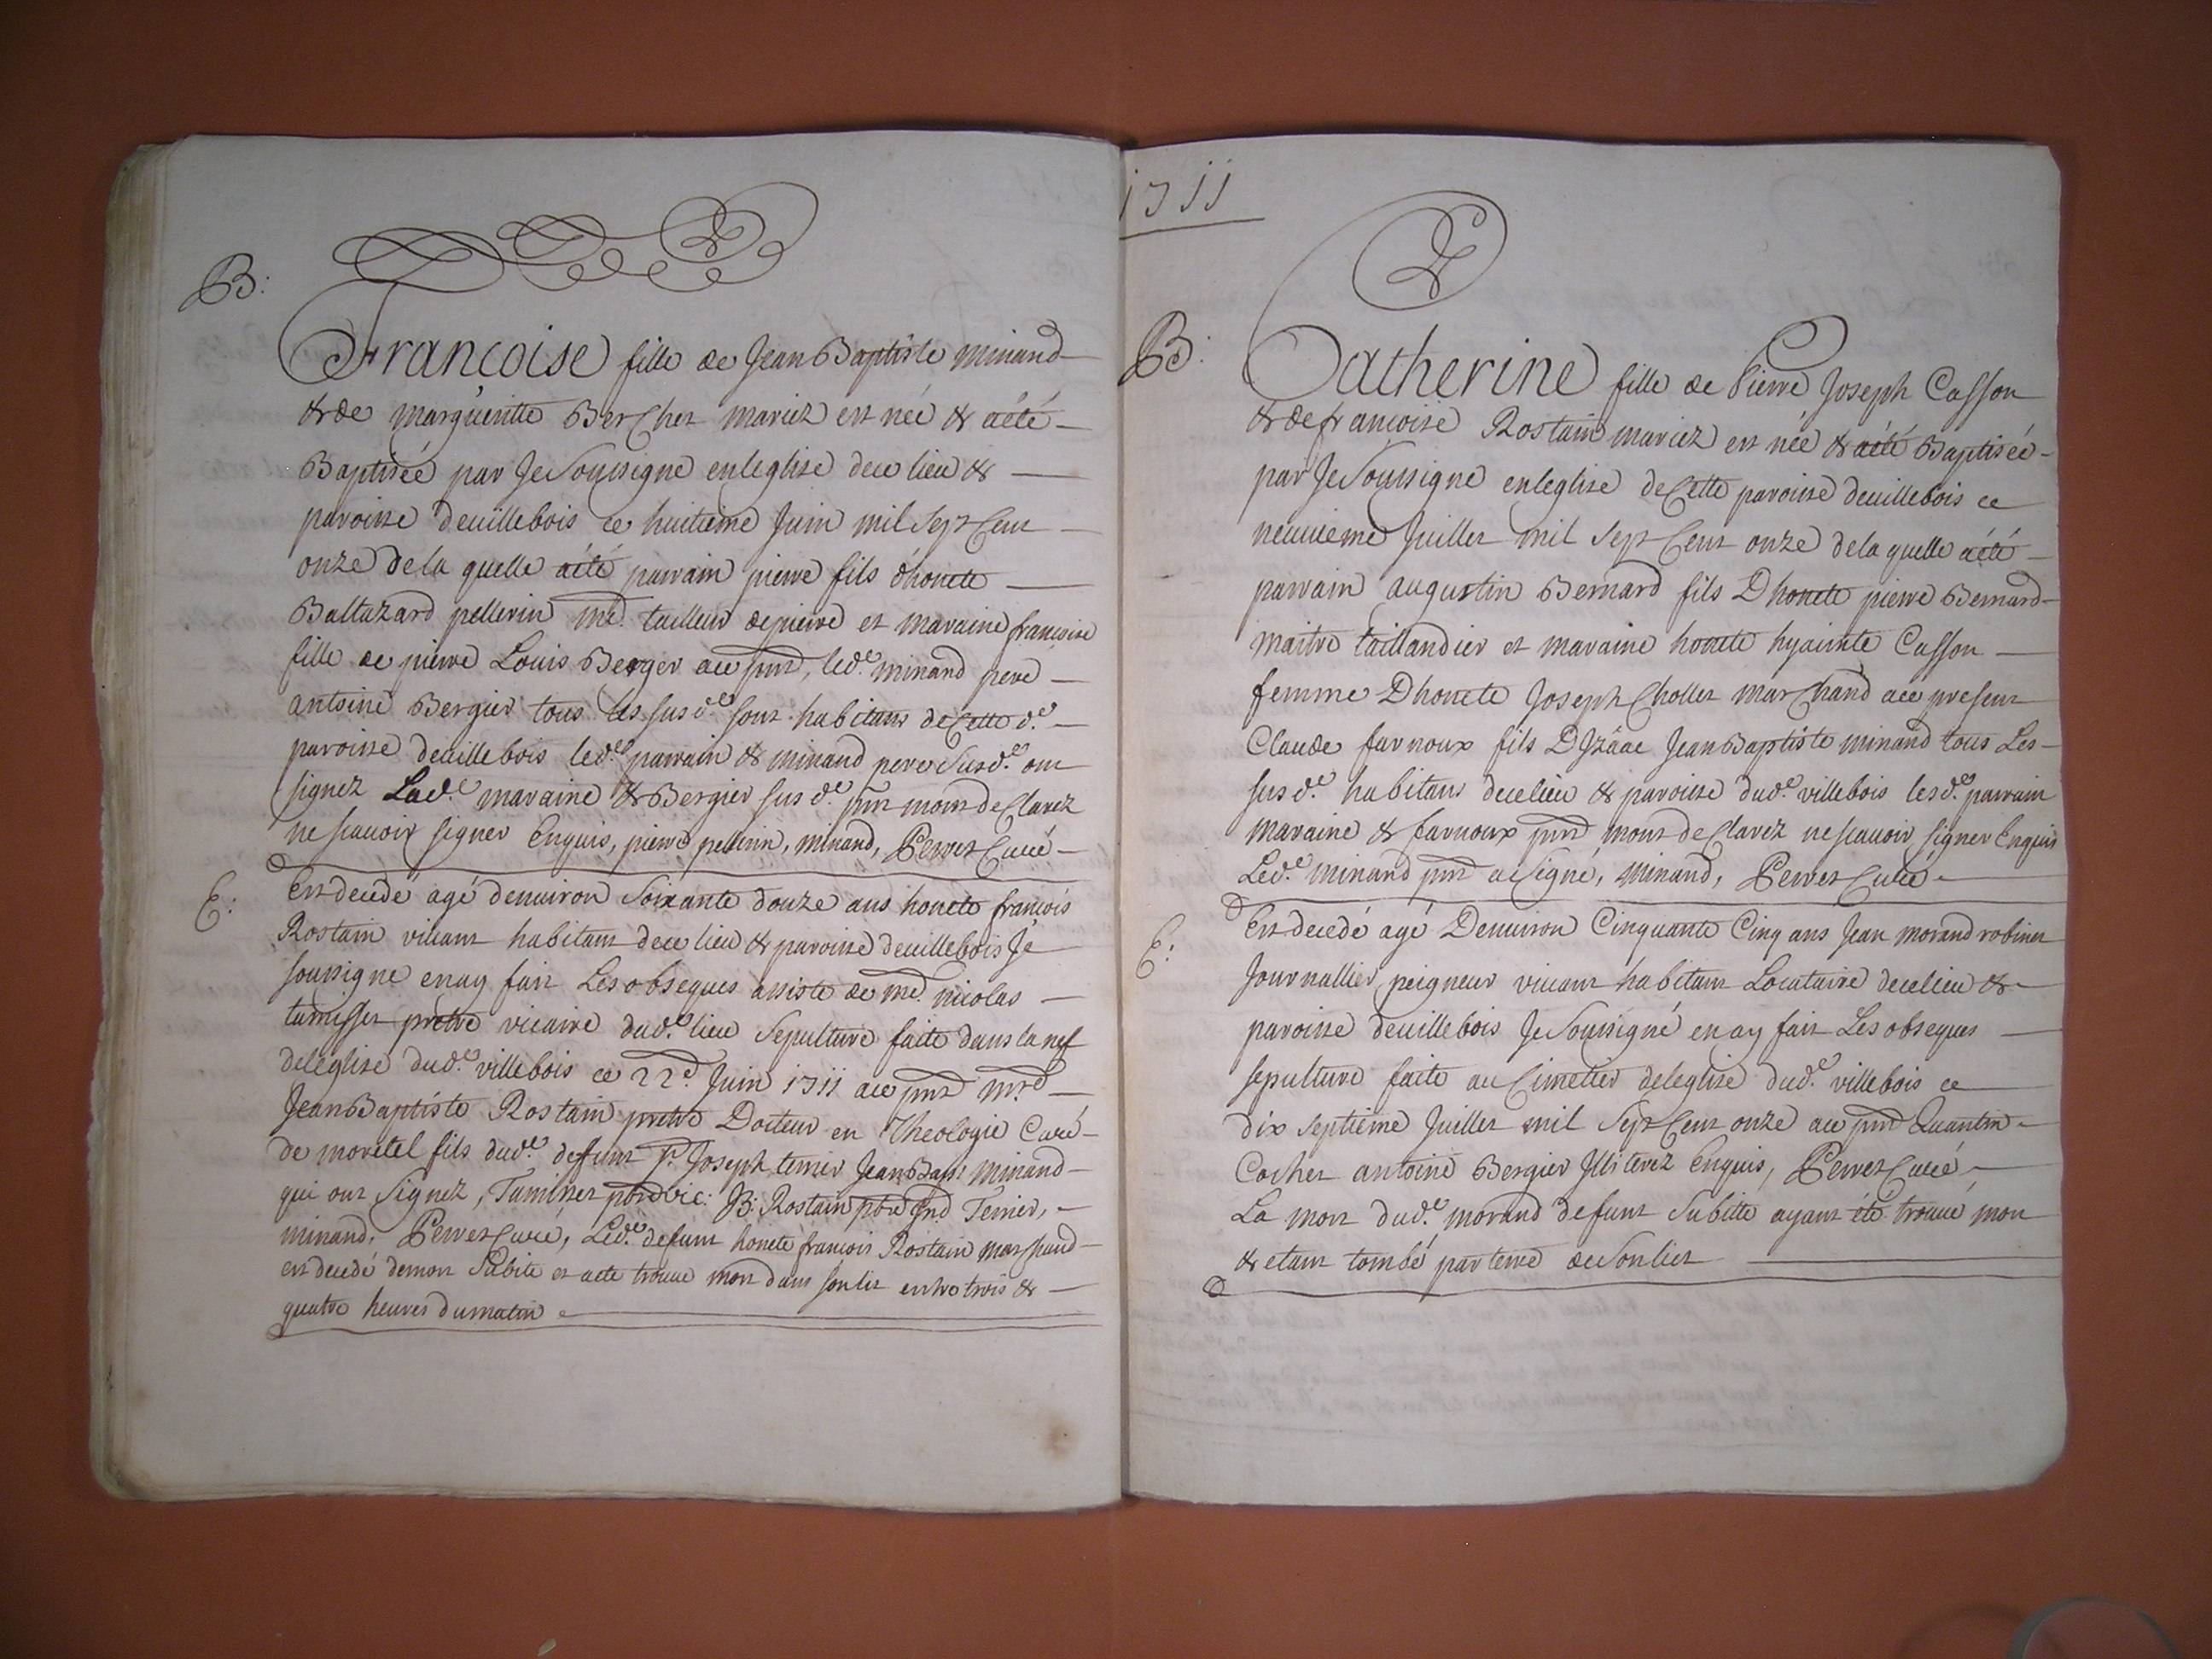 1711
B:
Francoise fille de Jean Baptiste minand
& de margueritte Berchet mariez est née & aété
Baptiséé par Je Soussigne enleglise dece lieu &
paroisse deuillebois ce huitieme Juin mil Sept Cent
onze dela quelle aété parrain pierre fils d'honete
Baltazard pellerin me. tailleur depierre et maraine francoise
fille de pierre Louis Berger ace pnt, led.e minand pere
antoine Bergier tous les susd.e sont habitans deCette d.e
paroisse deuillebois led.e parrain & minand pere Susd.e ont
signez Lad.e maraine & Bergier susd.e pnt mont deClarez
ne scauoir signer Enquis, pierre pellerin, minand, Perret Curé
E:
Est decedé agé denuiron Soixante douze ans honete francois
Rostain viuant habitant dece lieu & paroisse deuillebois Je
soussigne enay fait Les obseques assiste de me. nicolas
tamisset pretre vicaire dud.e lieu Sepulture faite dans la nef
deleglise dud.e villebois ce 22e. Juin 1711 ace pnt mre
Jean Baptiste Rostain pretre Docteur en Theologie Curé
de morétel fils dud.e deffunt Sr. Joseph ternier Jean Bapt minand
qui ont Signez, Tamisset ptre vic: JB: Rostain ptre Ternier,
minand, Perret Curé, Led.e defunt honete francois Rostain marchand
est decedé demort Subite et aete trouue mort dans son lit entre trois &
quatre heures dumatin
B:
Catherine fille de Pierre Joseph Casson
& defrancoise Rostain mariez est née & aété Baptiséé
par Je Soussigne enleglise deCette paroisse deuillebois ce
neuuieme Juillet mil Sept Cent onze dela quelle aété
parrain augustin Bernard fils D honete pierre Bernard
maitre taillandier et maraine honete hyainte Casson
femme D honete Joseph Chollet marchand ace present
Claude farnoux fils D Jzáac Jean Baptiste minand tous Les
susd.e habitans decelieu & paroisse dud.e villebois lesd.e parrain
maraine & farnoux pnt mont deClarez ne scauoir signer Enquis
Led.e minand pnt a Signé, minand, Perret Curé
E:
Est decedé agé Denuiron Cinquante Cinq ans Jean morand robinet
Journallier peigneur viuant habitant Locataire decelieu &
paroisse deuillebois Je Soussigné en ay fait Les obseques
sepulture faite au Cimetier deleglise dud.e villebois ce
dix septieme Juillet mil Sept Cent onze ace pnt Quantin
Cochet antoine Bergier Jlliterez Enquis, Perret Curé
La mort dud.e morand defunt Subitte ayant été trouué mort
& etant tombé par terre deSonlict